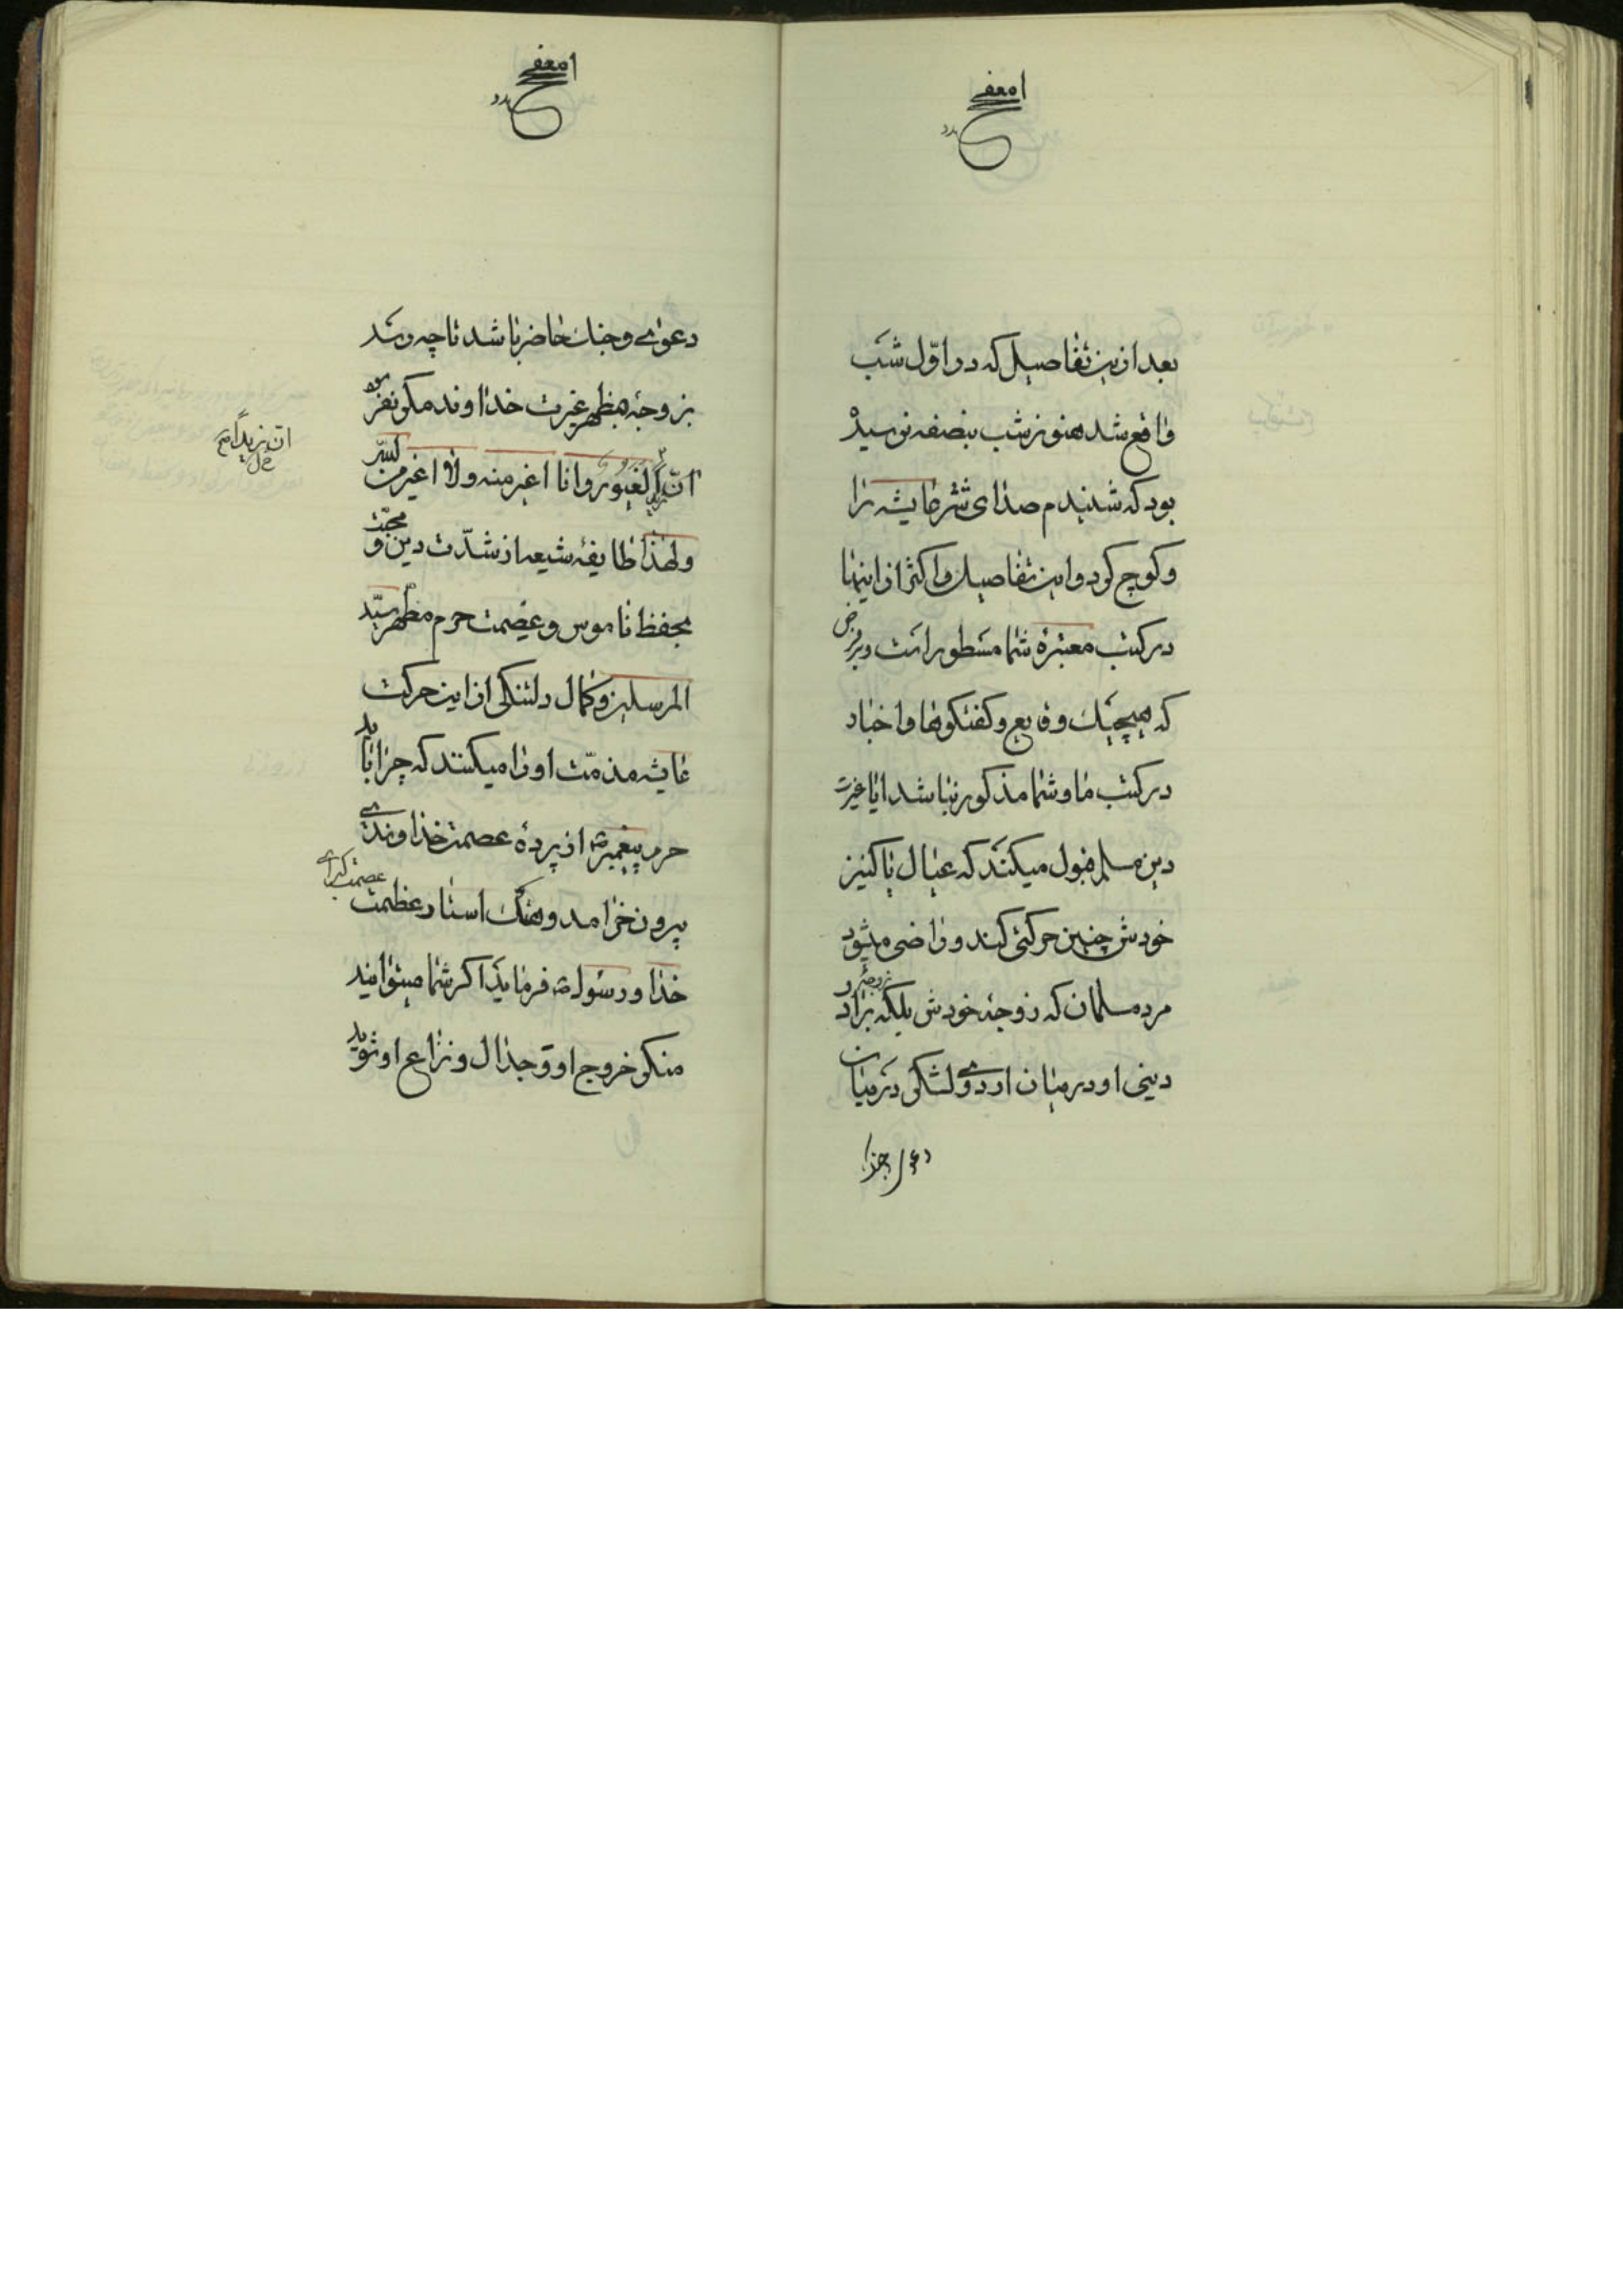 بعد ازین تفاصیل که در اوّل شب
واقع شد هنوز شب بنصفه نرسیده
بود که شنیدم صدای شتر عایشه را
و کوچ کرد و این تفاصیل و اکثر از اینها
در کتب معتبرهٔ شما مسطور است و بر فرض
که هیچیک وقایع و گفتگوها و اخبار
در کتب ما و شما مذکور نباشد ایا غیرت
دین مسلم قبول میکند که عیال یا کنیز
خودش چنین حرکتی کند و راضی میشود
مرد مسلمان که زوجهٔ خودش بلکه زوجهٔ برادر
دینی او در میان اردوی لشکری در میان
دعوی وجنک حاضر باشد تا چه رسد
بزوجهٔ مظهر غیرت خداوند مگر نفرموده
انّ الغیور وانا اغیر منه والله اغیر من
ولهذا طایفهٔ شیعه از شدّت دین و محبّت
بحفظ ناموس و عصمت حرم مطهر سیّد
المرسلین و کمال دلتنکی از این حرکت
عایشه مذمّت او را میکنند که چرا باید
حرم پیغمبر از پردهٔ عصمت خداوندی
بیرون خرامد و هتک استار عظمت عصمت کبرای
خدا و رسول فرماید اگر شما میتوانید
منکر خروج او و جدال و نزاع او شوید